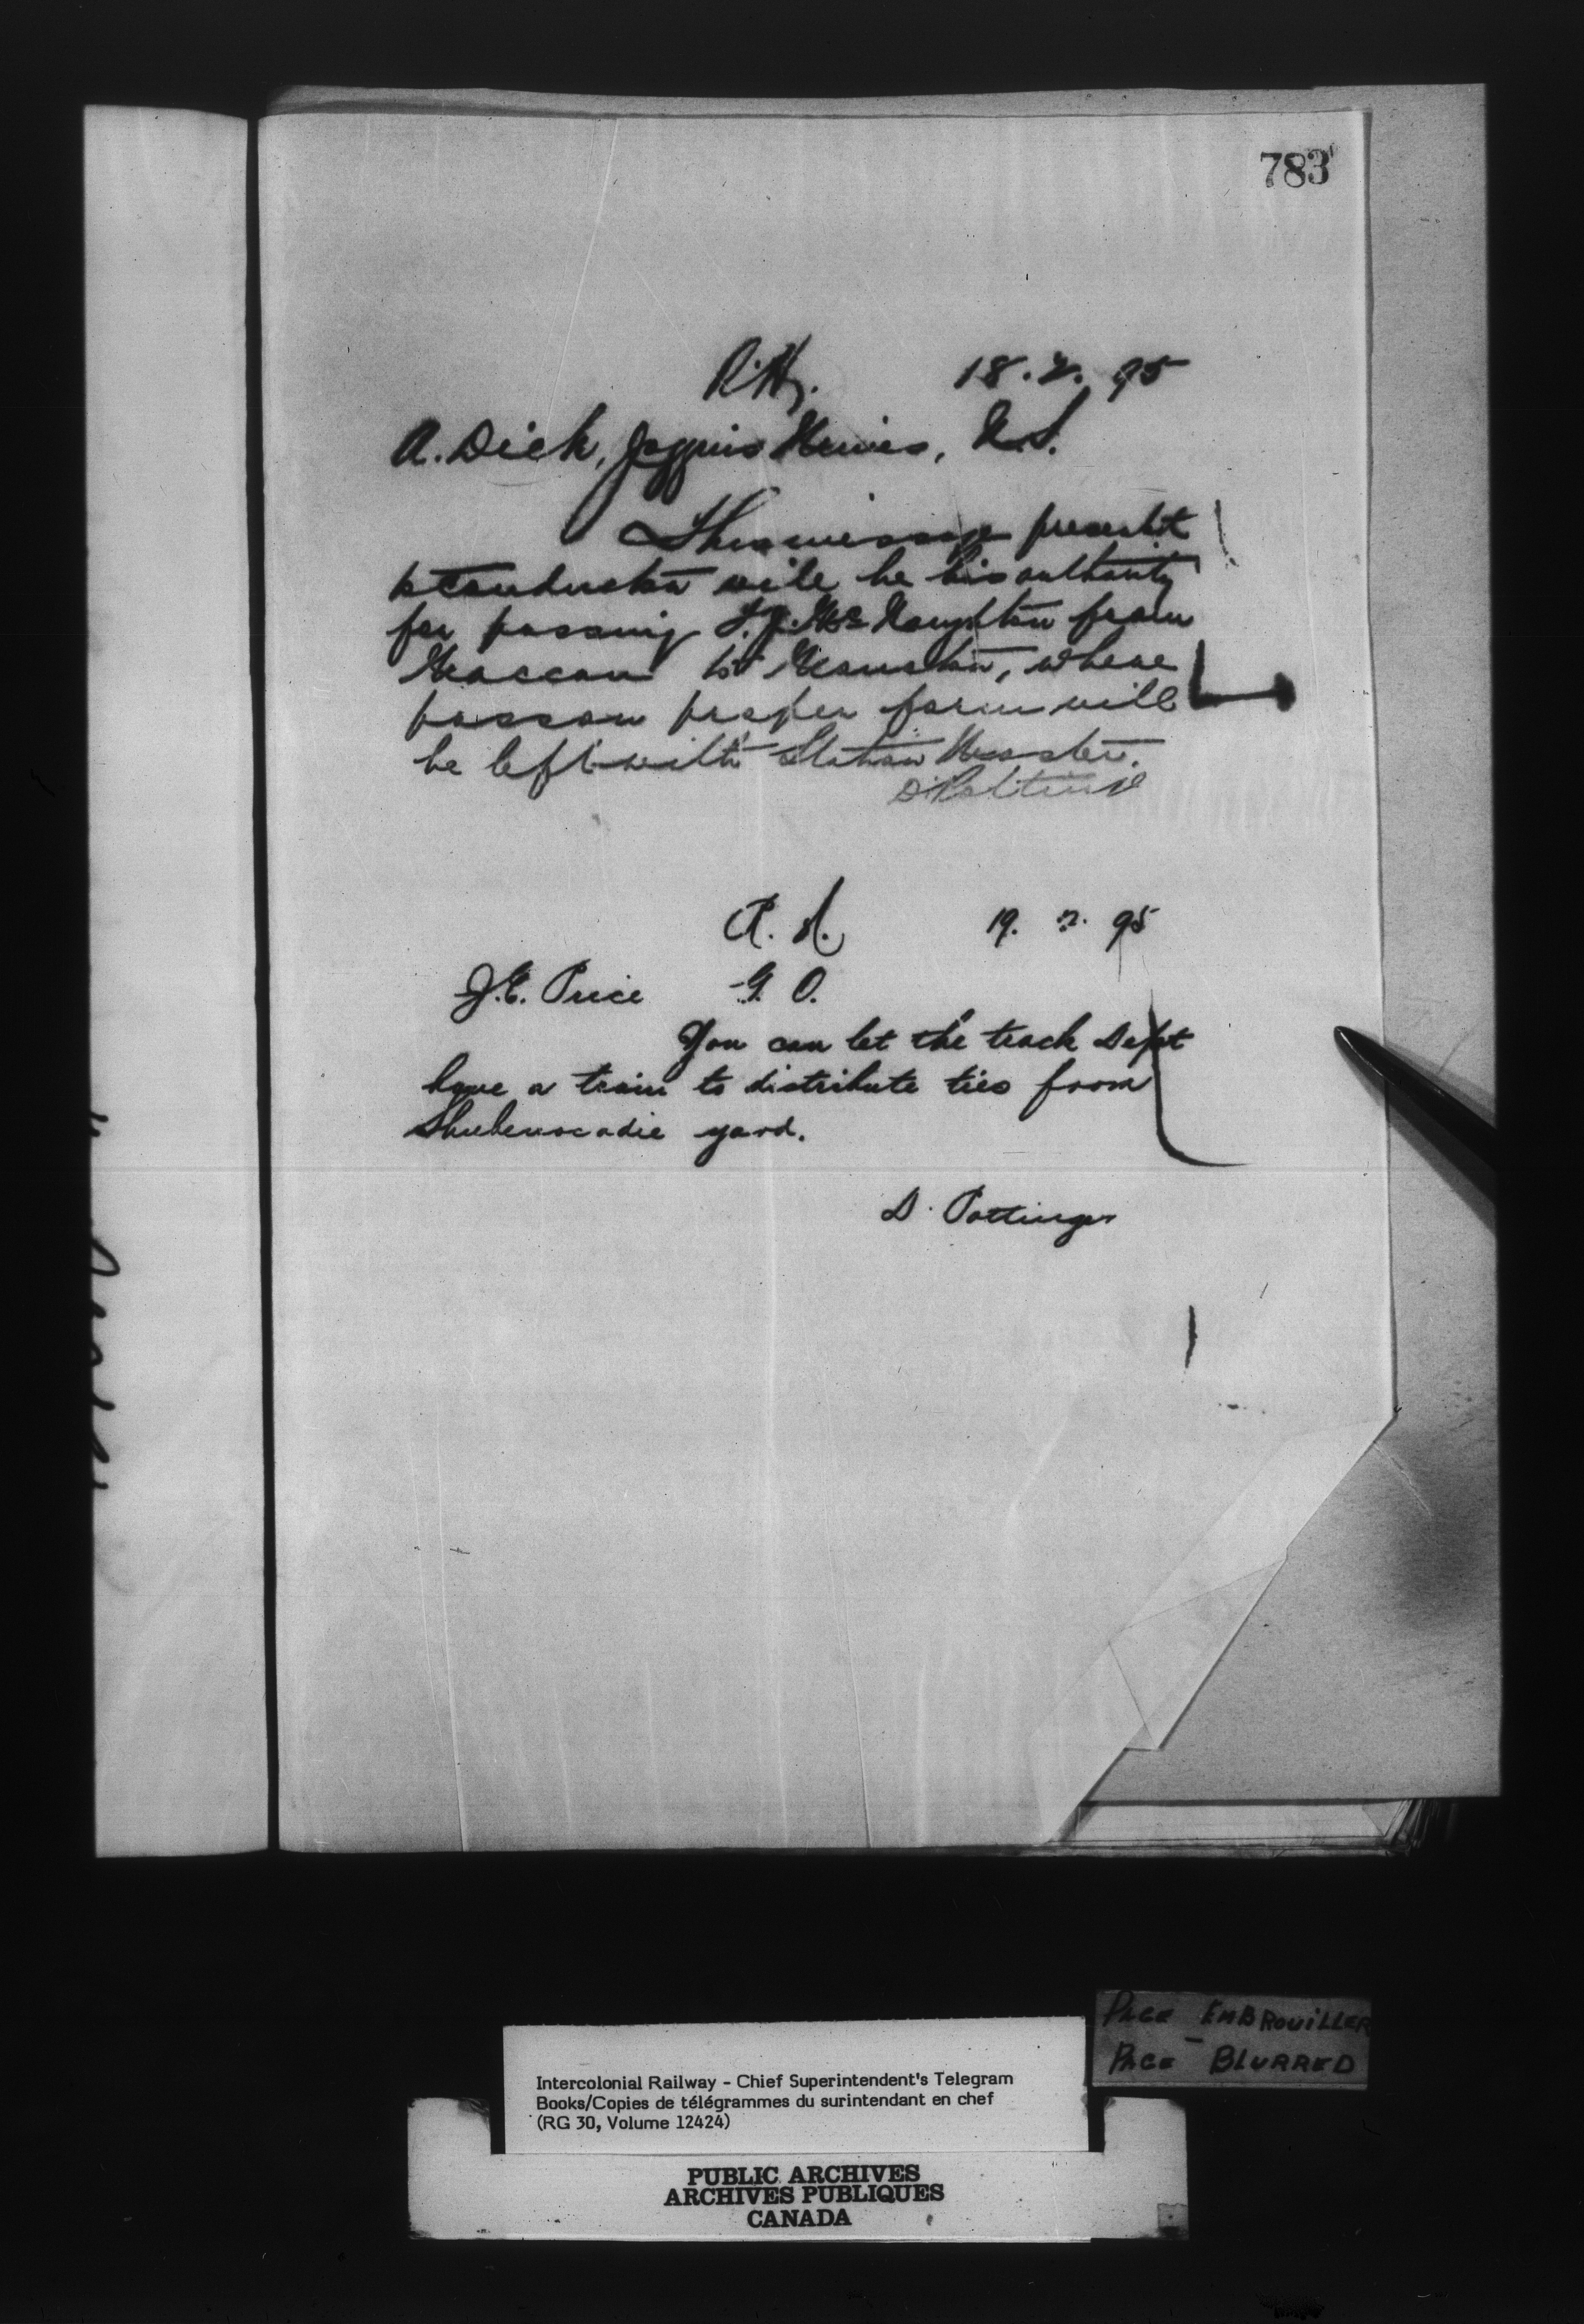 783
R.Hy. 18.2.95
A. Dick, Joggins Mines, N.S.
This message present
to Conductor will be his authority
for passing McNaughton from
Maccan to Moncton, where
pass on proper form will
be left with Station Master.
D. Pottinger
R. H. 19. 2. 95
J.E. Price G. O.
You can let the track Dept
have a train to distribute ties from
Shubenacadie yard.
D. Pottinger
PAGE EMBROUILLER
PAGE - BLURRED
Intercolonial Railway - Chief Superintendent's Telegram
Books/Copies de télégrammes du surintendant en chef
(RG 30, Volume 12424)
PUBLIC ARCHIVES
ARCHIVES PUBLIQUES
CANADA